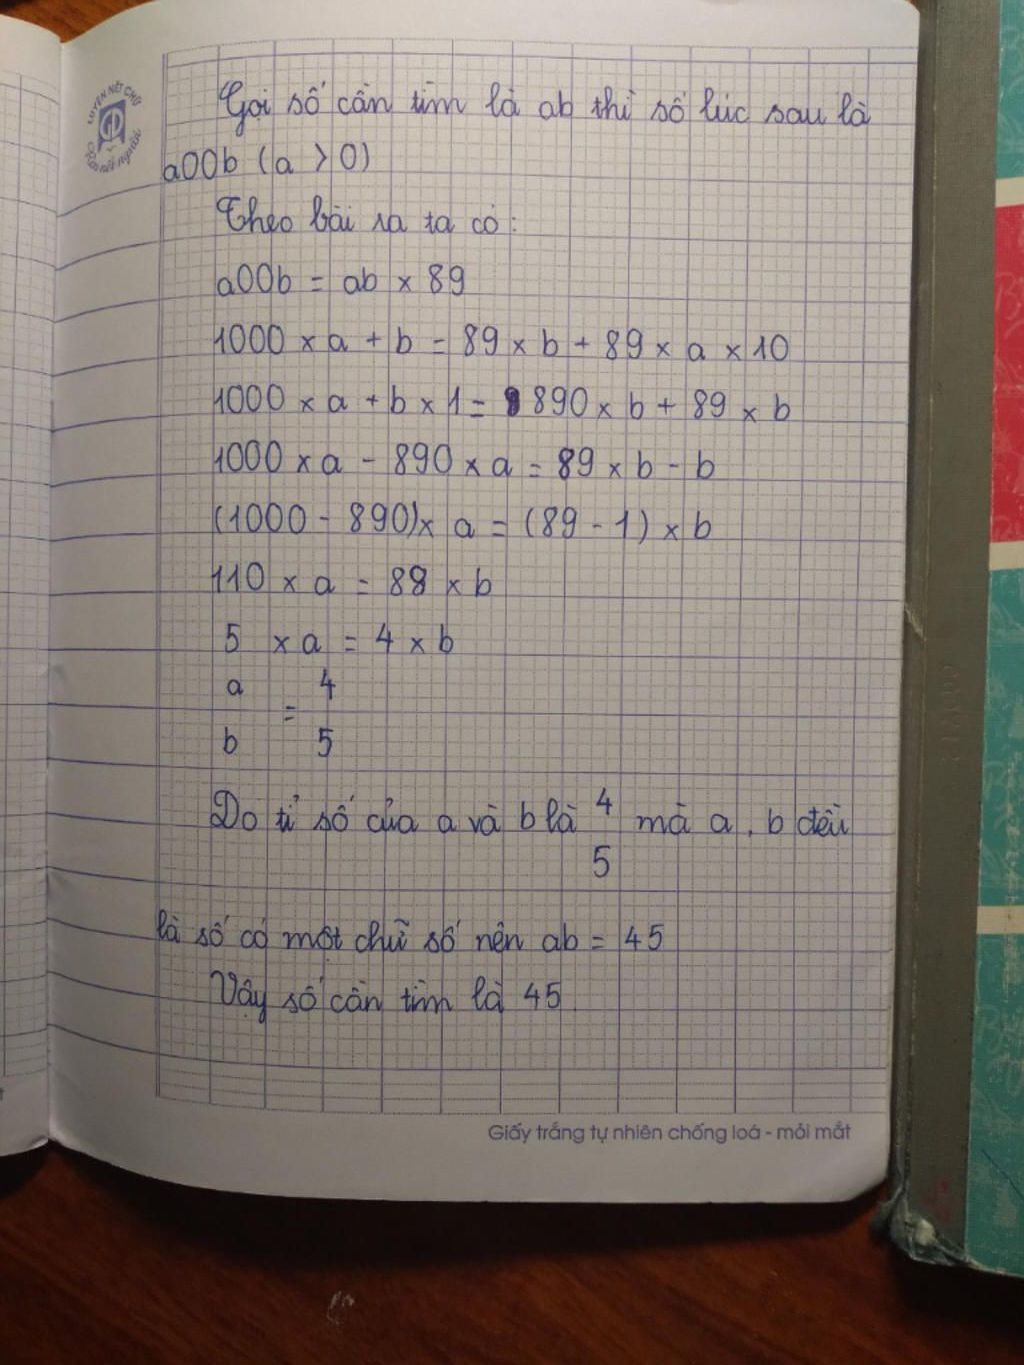 LUYỆN NÉT CHỮ
Rèn nết người
Gọi số cần tìm là ab thì số lúc sau là
a00b (a > 0)
Theo bài ra ta có:
a00b = ab × 89
1000 × a + b = 89 × b + 89 × a × 10
1000 × a + b × 1 = 890 × b + 89 × b
1000 × a - 890 × a = 89 × b - b
(1000 - 890) × a = (89 - 1) × b
110 × a = 88 × b
5 × a = 4 × b
a 4
=
b 5
Do tỉ số của a và b là 4 mà a, b đều
5
là số có một chữ số nên ab = 45
Vậy số cần tìm là 45.
Giấy trắng tự nhiên chống loá - mỏi mắt